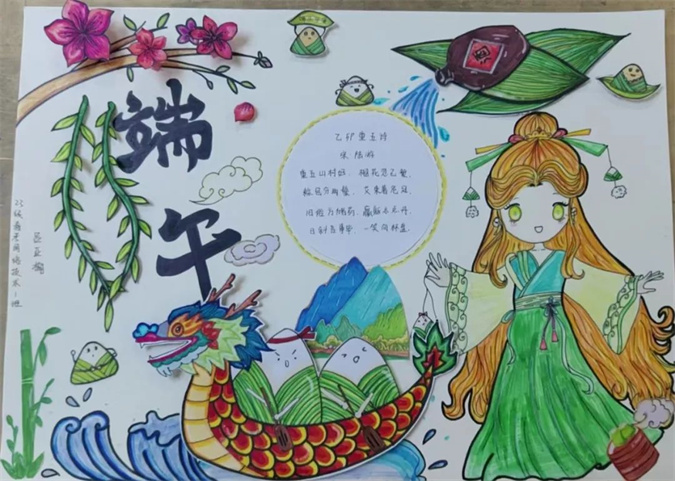 端
午
乙卯重五诗
宋 陆游
重五山村好，榴花忽已繁，
粽包分两髻，艾束著危冠。
旧俗方储药，羸躯亦点丹，
日斜吾事毕，一笑向杯盘。